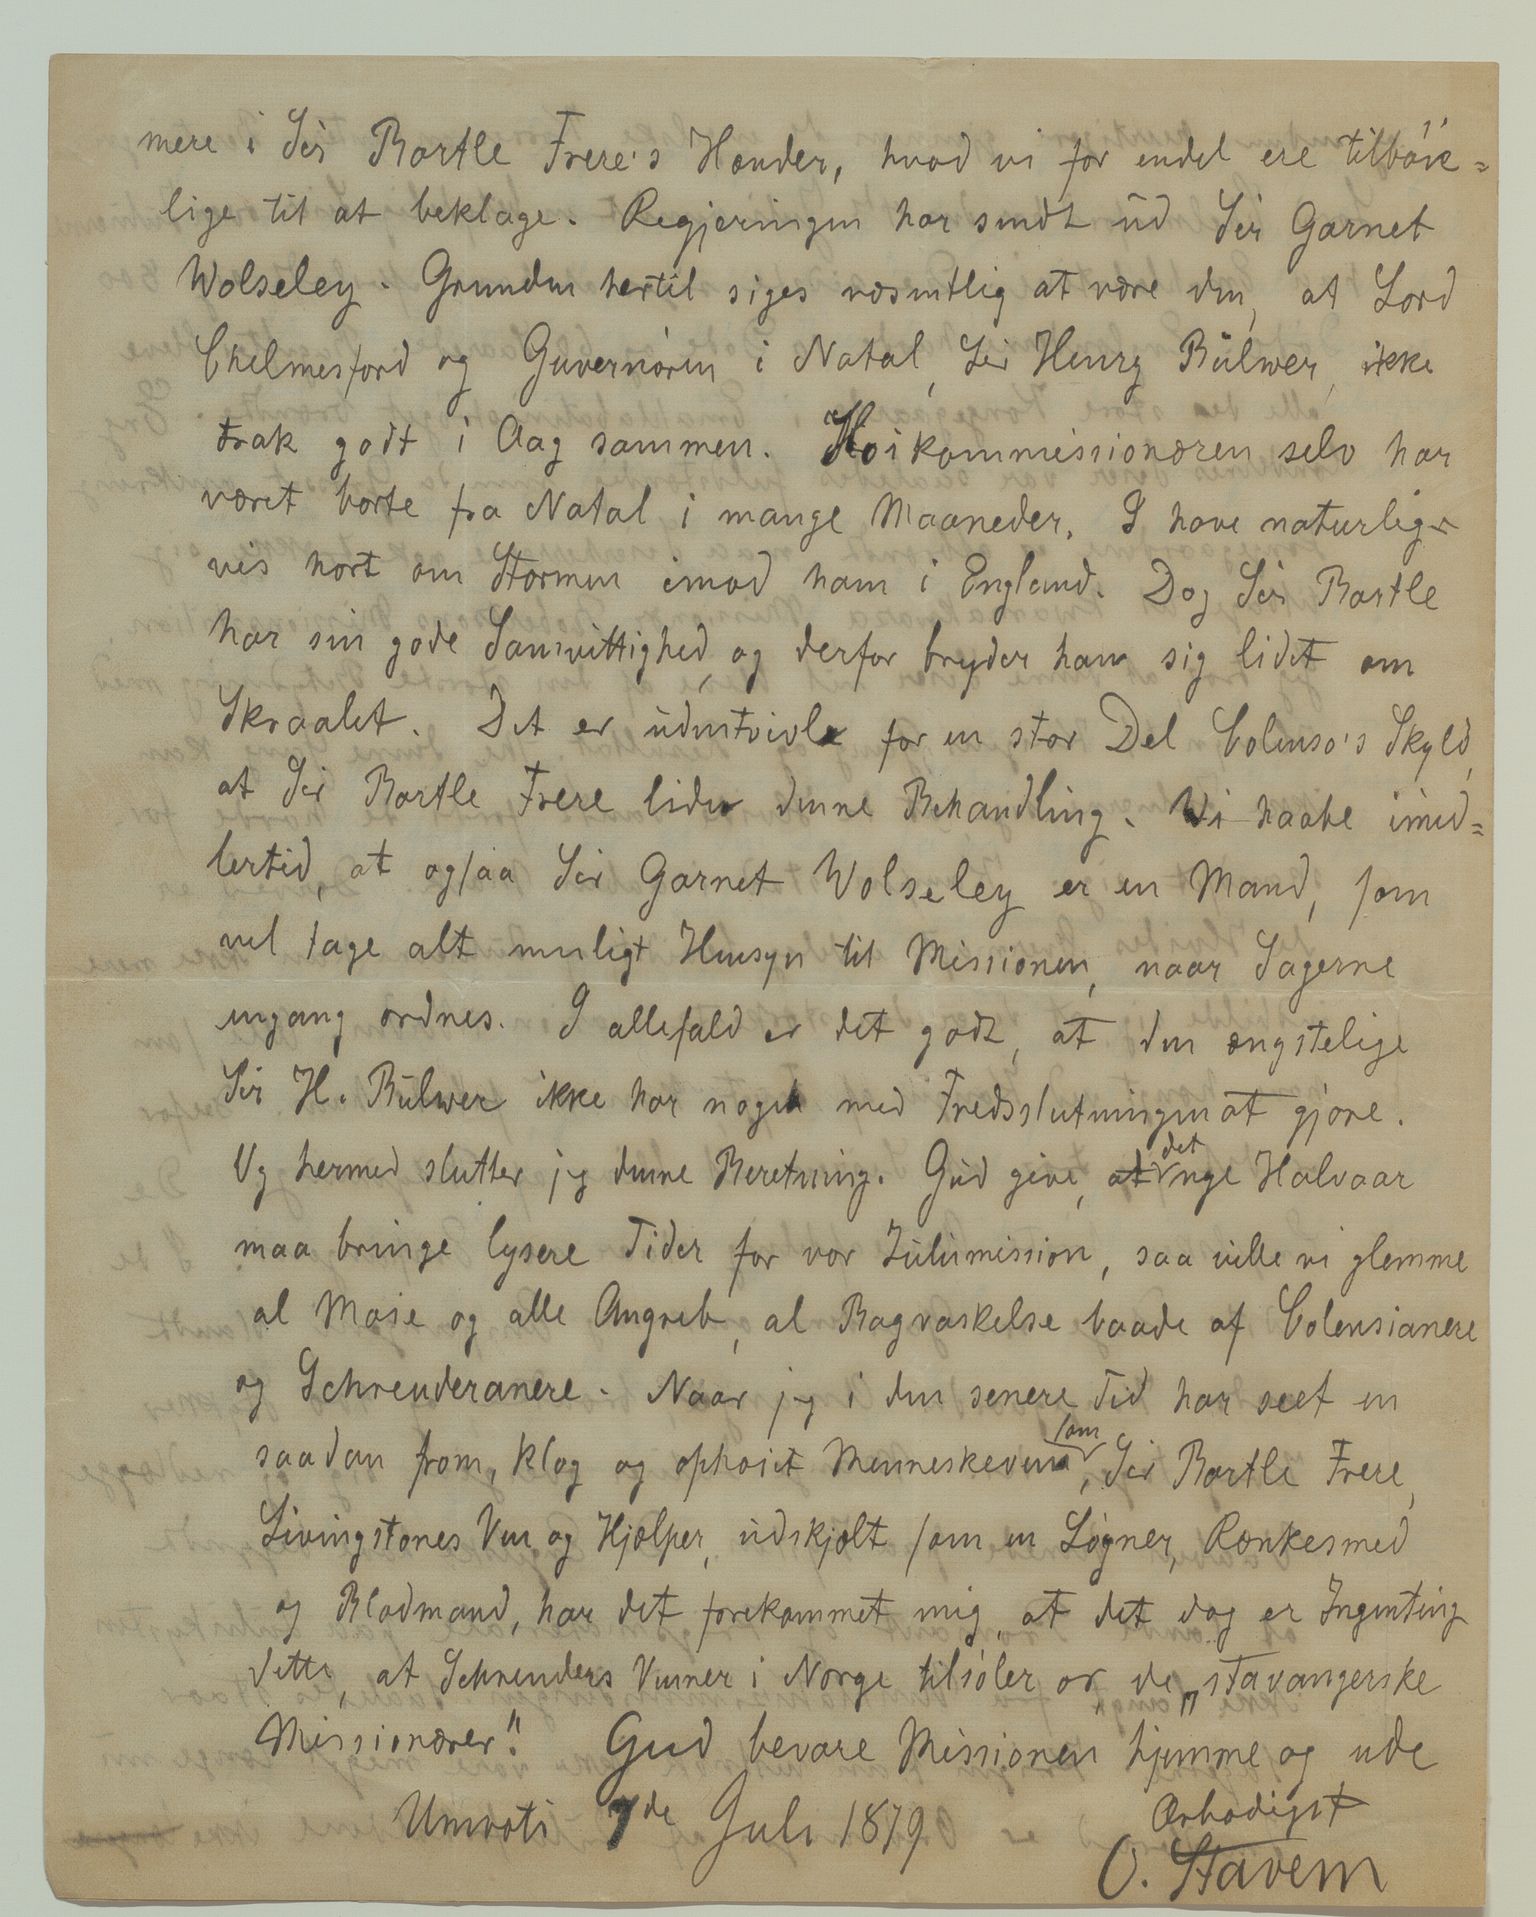 mere i Sir Bartle Frere's Hænder, hvad vi for endel ere tilböie=
lige til at beklage. Regjeringen har sendt ud Sir Garnet
Wolseley. Grunden hertil siges væsentlig at være den, at Lord
Chelmesford og Guvernören i Natal, Sir Henry Bulwer, ikke
trak godt i Aag sammen. Höikommissionæren selv har
været borte fra Natal i mange Maaneder. I have naturlig-
vis hört om Stormen imod ham i England. Dog Sir Bartle
har sin gode Samvittighed, og derfor bryder han sig lidet om
Skraalet. Det er udentvivl for en stor Del Colenso's Skyld,
at Sir Bartle Frere lider denne Behandling. Vi haabe imid=
lertid, at ogsaa Sir Garnet Wolseley er en Mand, som
vil tage alt muligt Hensyn til Missionen, naar Sagerne
engang ordnes. I allefald er det godt, at den ængstelige
Sir H. Bulwer ikke har noget med Fredsslutningen at gjöre.
Og hermed slutter jeg denne Beretning. Gud give, at det nye Halvaar
maa bringe lysere Tider for vor Zulumission, saa ville vi glemme
al Möie og alle Angreb, al Bagvaskelse baade af Colensianere
og Schreuderanere. Naar jeg i den senere Tid har seet en
saadan from, klog og ophöiet Menneskeven som, Sir Bartle Frere,
Livingstones Ven og Hjælper, udskjælt som en Lögner, Rænkesmed
og Blodmand, har det forekommet mig, at det dog er Ingenting
dette, at Schreuders Venner i Norge tilsöler os, de „stavangerske
Missionærer". Gud bevare Missionen hjemme og ude
Umvoti 7de Juli 1879 Ærbödigst
O. Stavem